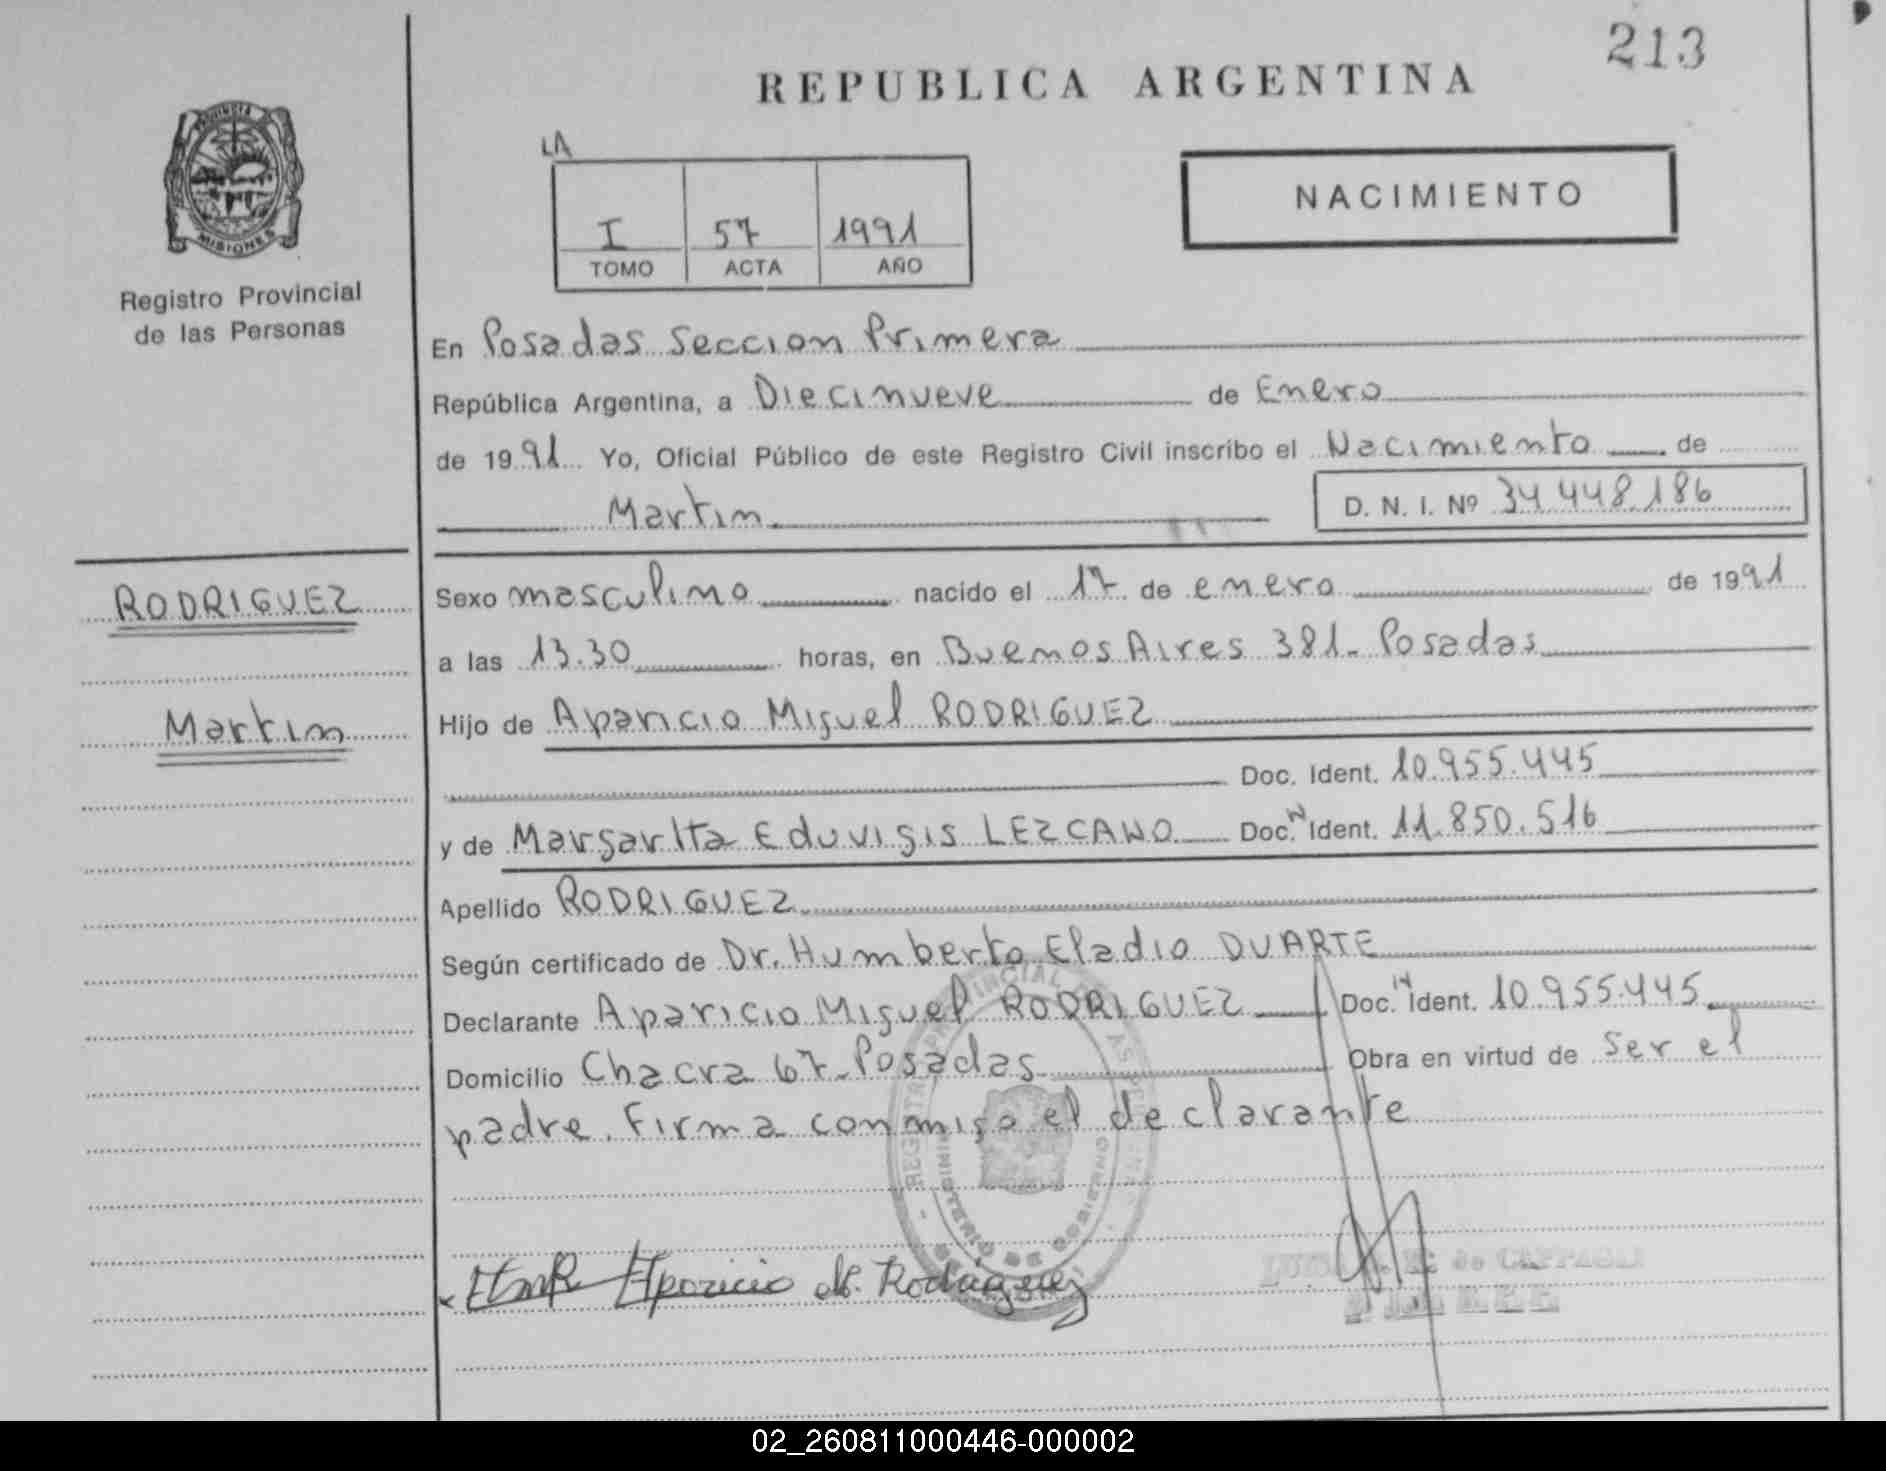 213
REPUBLICA ARGENTINA
PROVINCIA
MISIONES
Registro Provincial
de las Personas
LA
I 57 1991
TOMO ACTA AÑO
NACIMIENTO
En Posadas Seccion Primera
República Argentina, a Diecinueve de Enero
de 1991 Yo, Oficial Público de este Registro Civil inscribo el Nacimiento de
Martin D. N. I. Nº 34.448.186
RODRIGUEZ
Martin
Sexo masculino nacido el 17 de enero de 1991
a las 13.30 horas, en Buenos Aires 381- Posadas
Hijo de Aparicio Miguel RODRIGUEZ
Doc. Ident. 10.955.445
y de Margarita Eduvigis LEZCANO Doc. N Ident. 11.850.516
Apellido RODRIGUEZ
Según certificado de Dr. Humberto Eladio DUARTE
Declarante Aparicio Miguel RODRIGUEZ Doc. N Ident. 10.955.445
Domicilio Chacra 67-Posadas Obra en virtud de Ser el
padre. Firma conmigo el declarante
MINISTERIO DE GOBIERNO
Aparicio M. Rodriguez
02_260811000446-000002